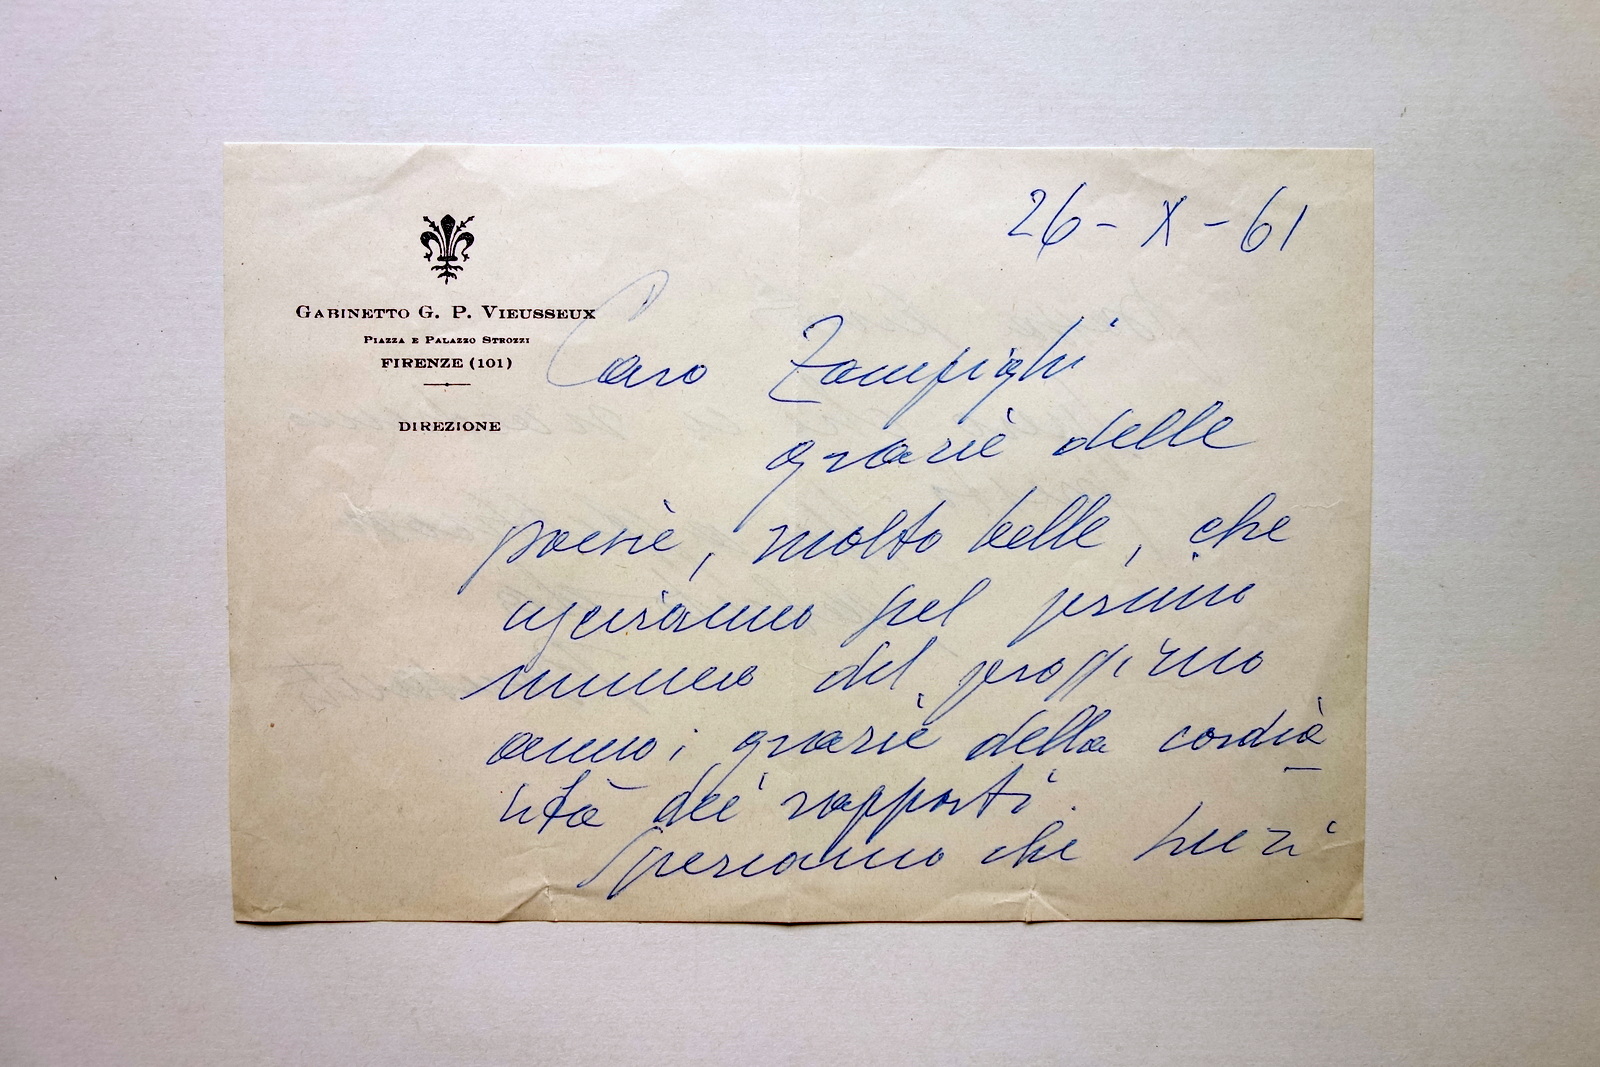 26 - X - 61
GABINETTO G. P. VIEUSSEUX
PIAZZA E PALAZZO STROZZI
FIRENZE (101)
DIREZIONE
Caro Zampighi
grazie delle
poesie, molto belle, che
usciranno nel primo
numero del prossimo
anno; grazie della cordia
lità dei rapporti.
Speriamo che